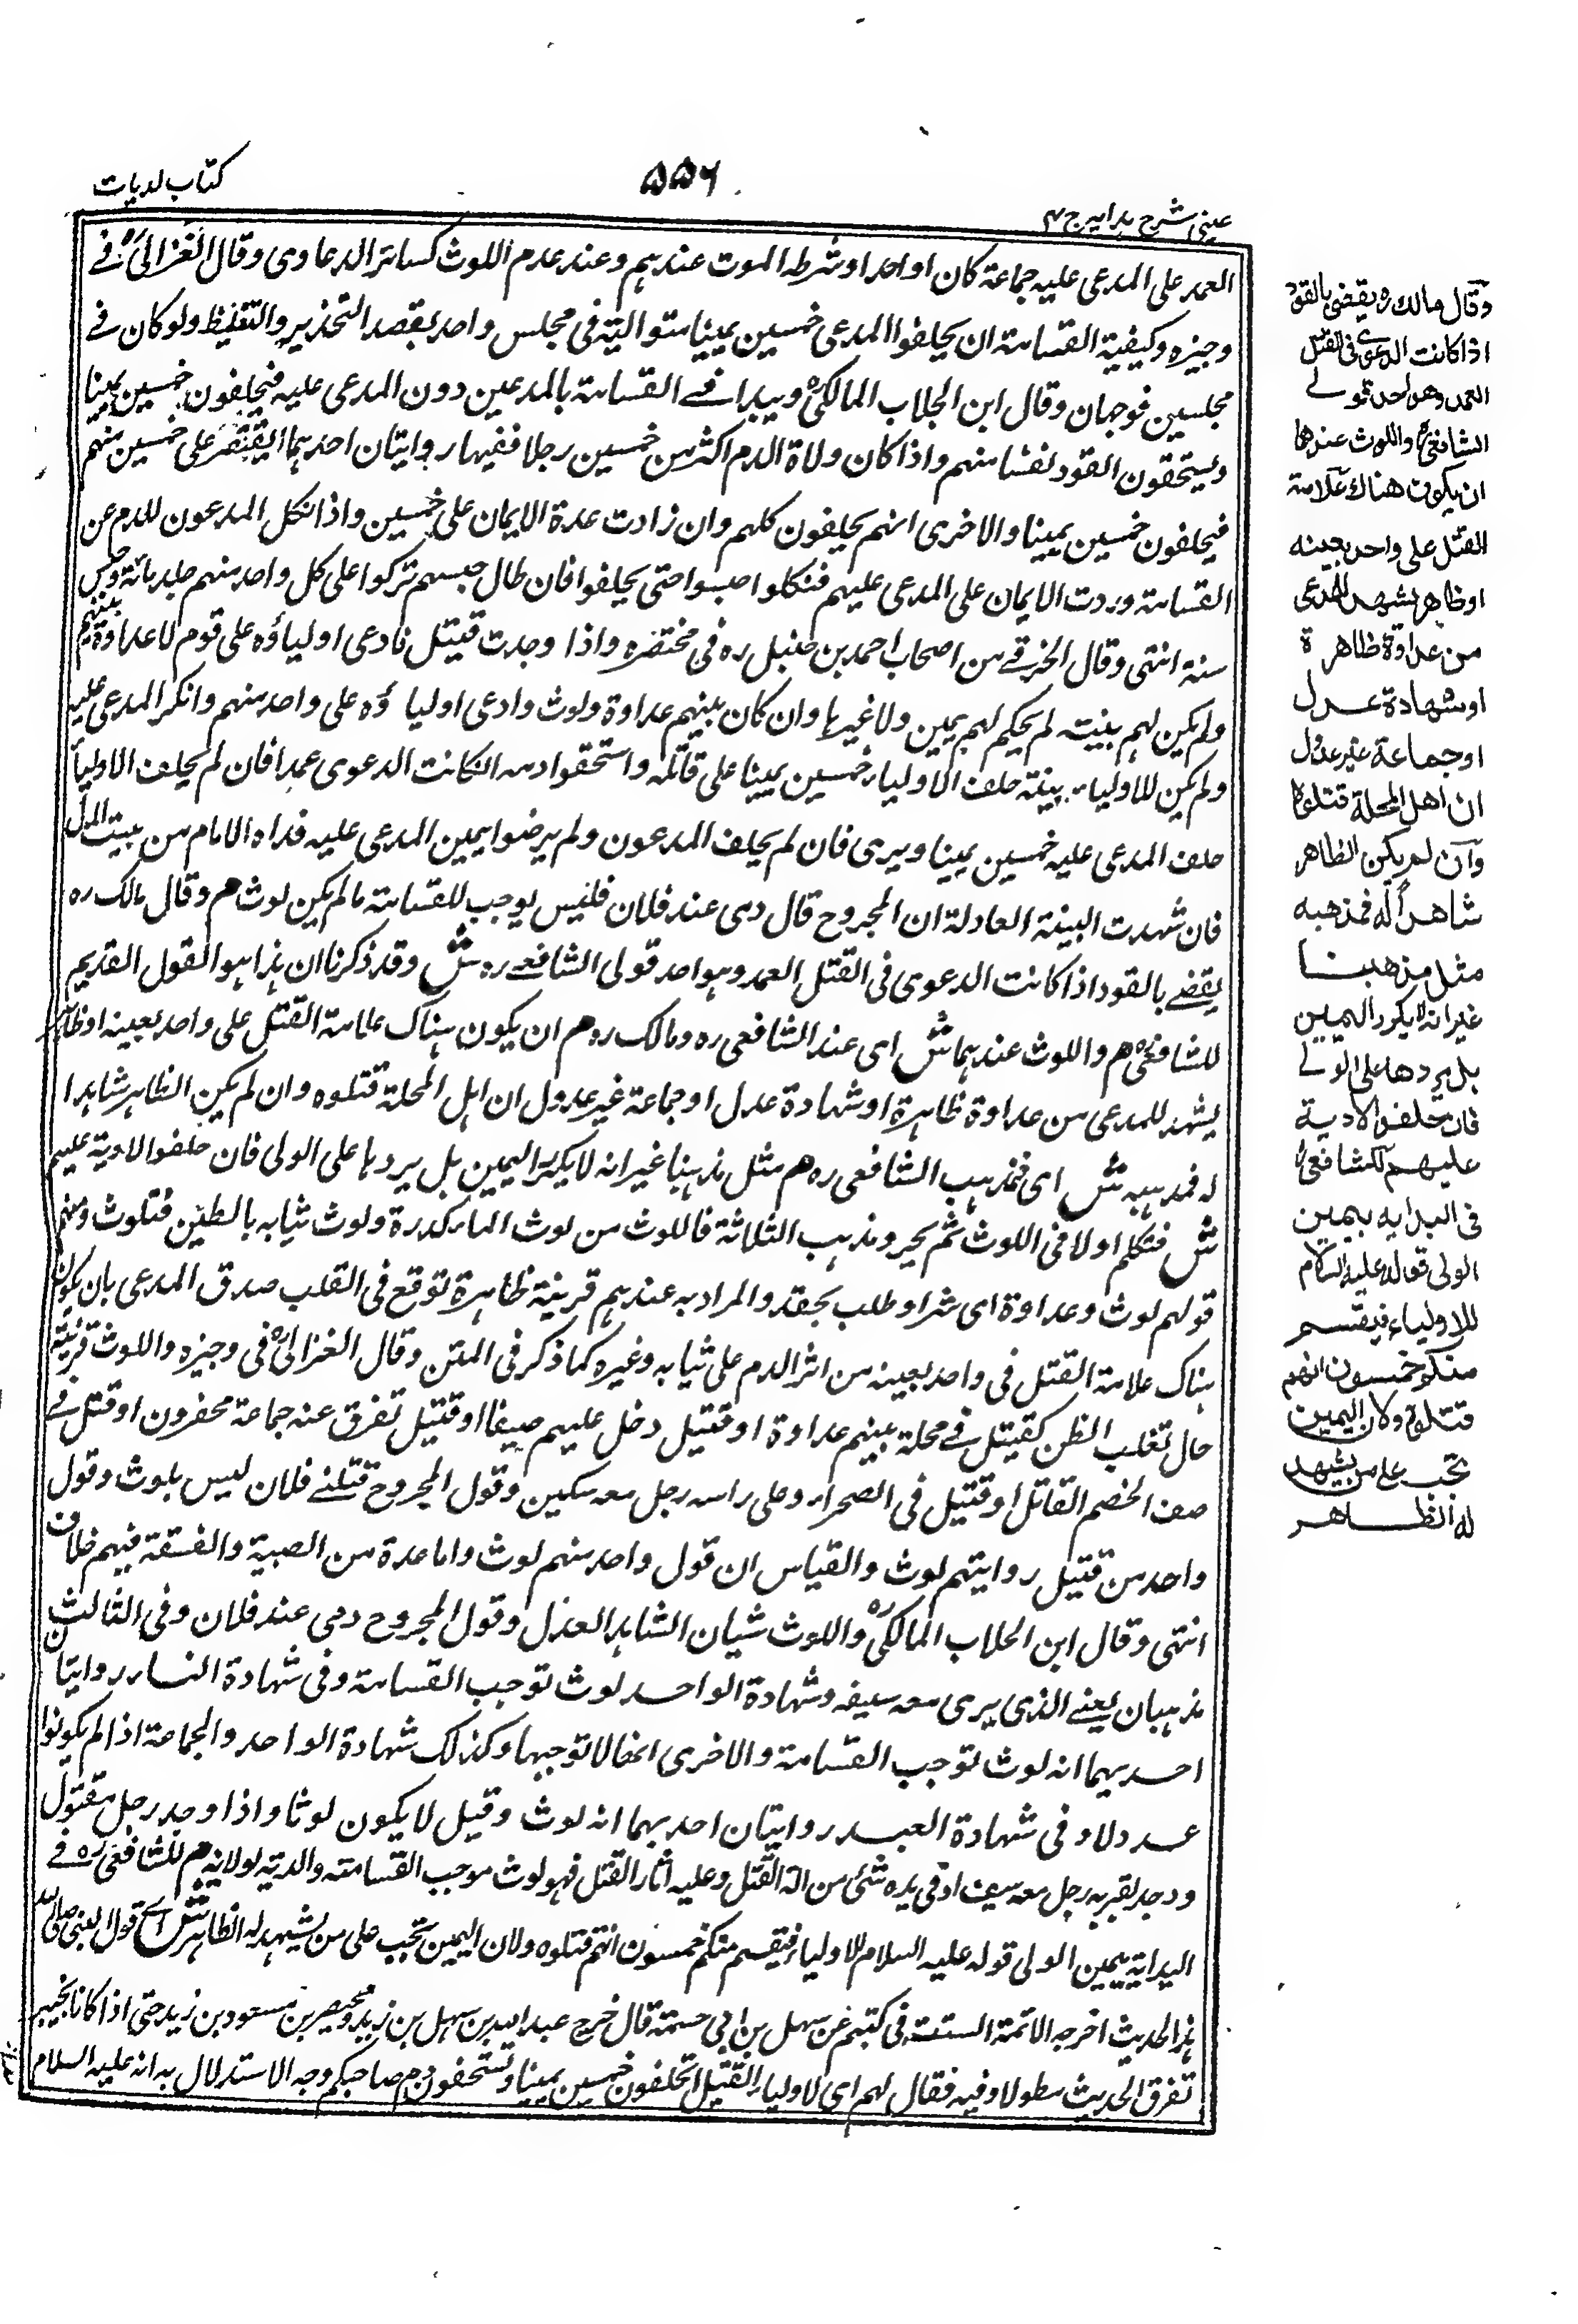 عینی شرح ہدایہ ج ۴
۵۵۶
کتاب لدیات
العمد علی المدعی علیہ جماعة کان او واحد او شرطہ اللوث عندہم و عند عدم اللوث کسائر الدعاوی وقال الغزالیؒ فے
وجیزہ وکیفیة القسامة ان یحلفوا المدعی خمسین یمینا متوالیة فی مجلس واحد بقصد التحذیر والتغلیظ ولو کان فے
مجلسین فوجہان وقال ابن الجلاب المالکیؒ ویبدا فے القسامة بالمدعین دون المدعی علیہ فیحلفون خمسین یمینا
ویستحقون القود نفسا منہم واذا کان ولاة الدم اکثر من خمسین رجلا ففیہا روایتان احدہما یقتصر علی خمسین منہم
فیحلفون خمسین یمینا والاخری انہم یحلفون کلہم وان زادت عدة الایمان علی خمسین واذا نکل المدعون للدم عن
القسامة وردت الایمان علی المدعی علیہم فنکلوا حبسوا حتی یحلفوا فان طال حبسہم ترکوا علی کل واحد منہم جلد مائة وحبس
سنة انتہی وقال الخرقے من اصحاب احمد بن حنبل رہ فی مختصرہ واذا وجدت قتیل فادعی اولیاؤہ علی قوم لا عداوة بینہم
ولم یکن لہم بینة لم یحکم لہم یمین ولا غیرہا وان کان بینہم عداوة ولوث وادعی اولیاؤہ علی واحد منہم وانکر المدعی علیہ
ولم یکن للاولیاء بینة حلف الاولیاء خمسین یمینا علی قاتلہ واستحقوا دمہ ان کانت الدعوی عمدا فان لم یحلف الاولیاء
حلف المدعی علیہ خمسین یمینا ویبری فان لم یحلف المدعون ولم یرضوا یمین المدعی علیہ فداہ الامام من بیت المال
فان شہدت البینة العادلة ان المجروح قال دمی عند فلان فلیس یوجب للقسامة مالم یکن لوث م وقال مالک رہ
یقضے بالقود اذا کانت الدعوی فی القتل العمد وہو احد قولی الشافعے رہ ش وقد ذکرنا ان ہذا ہو القول القدیم
للشافعیؒ م واللوث عندہما ش ای عند الشافعی رہ ومالک رہ م ان یکون ہناک علامة القتل علی واحد بعینہ او ظاہر
یشہد للمدعی من عداوة ظاہرة او شہادة عدل او جماعة غیر عدول ان اہل المحلة قتلوہ وان لم یکن الظاہر شاہدا
لہ فمذہبہ ش ای فمذہب الشافعی رہ م مثل مذہبنا غیر انہ لا یکرر الیمین بل یردہا علی الولی فان حلفوا لا دیة علیہم
ش فتکلم اولا فی اللوث ثم بحیر ومذہب الثلاثة فاللوث من لوث الماء کدرہ ولوث ثیابہ بالطین فتلوث ومنہ
قولہم لوث وعداوة ای شر او طلب بحقد والمراد بہ عندہم قرینة ظاہرة توقع فی القلب صدق المدعی بان یکون
ہناک علامة القتل فی واحد بعینہ من اثر الدم علی ثیابہ وغیرہ کما ذکر فی المتن وقال الغزالیؒ فی وجیزہ واللوث قرینة
حال تغلب الظن کقتیل فے محلة بینہم عداوة او قتیل دخل علیہم ضیفا او قتیل تفرق عنہ جماعة محفرون او قتل فے
صف الخصم القاتل او قتیل فی الصحراء وعلی راسہ رجل معہ سکین وقول المجروح قتلنے فلان لیس بلوث وقول
واحد من قتیل روایتہم لوث والقیاس ان قول واحد منہم لوث واما عدة من الصبیة والفسقة فیہم خلاف
انتہی وقال ابن الجلاب المالکیؒ واللوث شیان الشاہد العدل وقول المجروح دمی عند فلان وفی الثالث
مذہبان یعنے الذی یری معہ سیفہ وشہادة الواحد لوث توجب القسامة وفی شہادة النساء روایتان
احدیہما انہ لوث توجب القسامة والاخری انہا لا توجبہا وکذلک شہادة الواحد والجماعة اذا لم یکونوا
عدولا وفی شہادة العبد روایتان احدیہما انہ لوث وقیل لا یکون لوثا واذا وجد رجل مقتول
ووجد بقربہ رجل معہ سیف او فی یدہ شئ من آلة القتل وعلیہ آثار القتل فہو لوث موجب القسامة والدیة لولایہ م للشافعی رہ فے
البدایة بیمین الولی قولہ علیہ السلام للاولیاء فیقسم منکم خمسون انہم قتلوہ ولان الیمین تجب علی من یشہد لہ الظاہر ش ای قول النبی صلی اللہ
ہذا الحدیث اخرجہ الائمة الستة فی کتبہم عن سہل بن ابی حثمة قال خرج عبد اللہ بن سہل بن زید ومحیصة بن مسعود بن زید حتی اذا کانا بخیبر
تفرق الحدیث مطولا وفیہ فقال لہم ای لاولیاء القتیل اتحلفون خمسین یمینا وتستحقون دم صاحبکم وجہ الاستدلال بہ انہ علیہ السلام
وقال مالك رہ یقضی بالقود
اذا كانت الدعوى فی القتل
العمد وهو احد قولے
الشافعیؒ واللوث عندهما
ان یكون هناك علامة
القتل علی واحد بعینه
او ظاهر یشهد للمدعی
من عداوة ظاهرة
او شهادة عدل
او جماعة غیر عدول
ان اهل المحلة قتلوه
وان لم یكن الظاهر
شاهدا له فمذهبه
مثل مذهبنا
غیر انه لا یكرر الیمین
بل یردها علی الولے
فان حلفوا لا دیة
علیهم للشافعیؒ
فی البدایه بیمین
الولی قوله علیه السلام
للاولیاء فیقسم
منكم خمسون انهم
قتلوه ولان الیمین
تجب علی من یشهد
له الظاهر